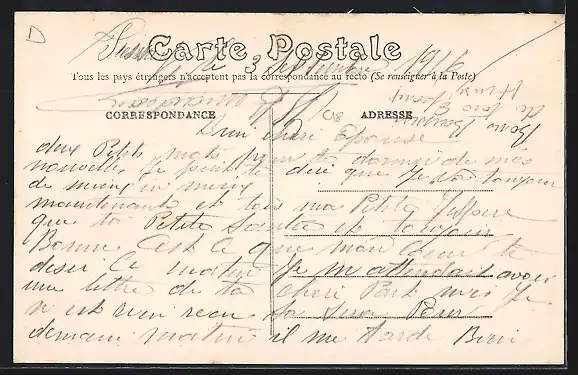 D
Carte Postale
le 3 Septembre 1916
Tous les pays étrangers n'acceptent pas la correspondance au recto (Se renseigner à la Poste)
CORRESPONDANCE
ADRESSE
C18
Bons Baisers
de
Mon cheri Epouse
deux Petits mots pour te donner de mes
nouvelles Je puis te dire que Je vais toujours
de mieux en mieux
maintenant et toi ma Petite J'espere
que ta Petite Santée et toujour
Bonne C'est ce que mon Coeur te
desir Ce matin Je m attendait avoir
une lettre de ta cheri Part mes Je
n est rien recu sa sera Pour
demain matin il me tarde Bien